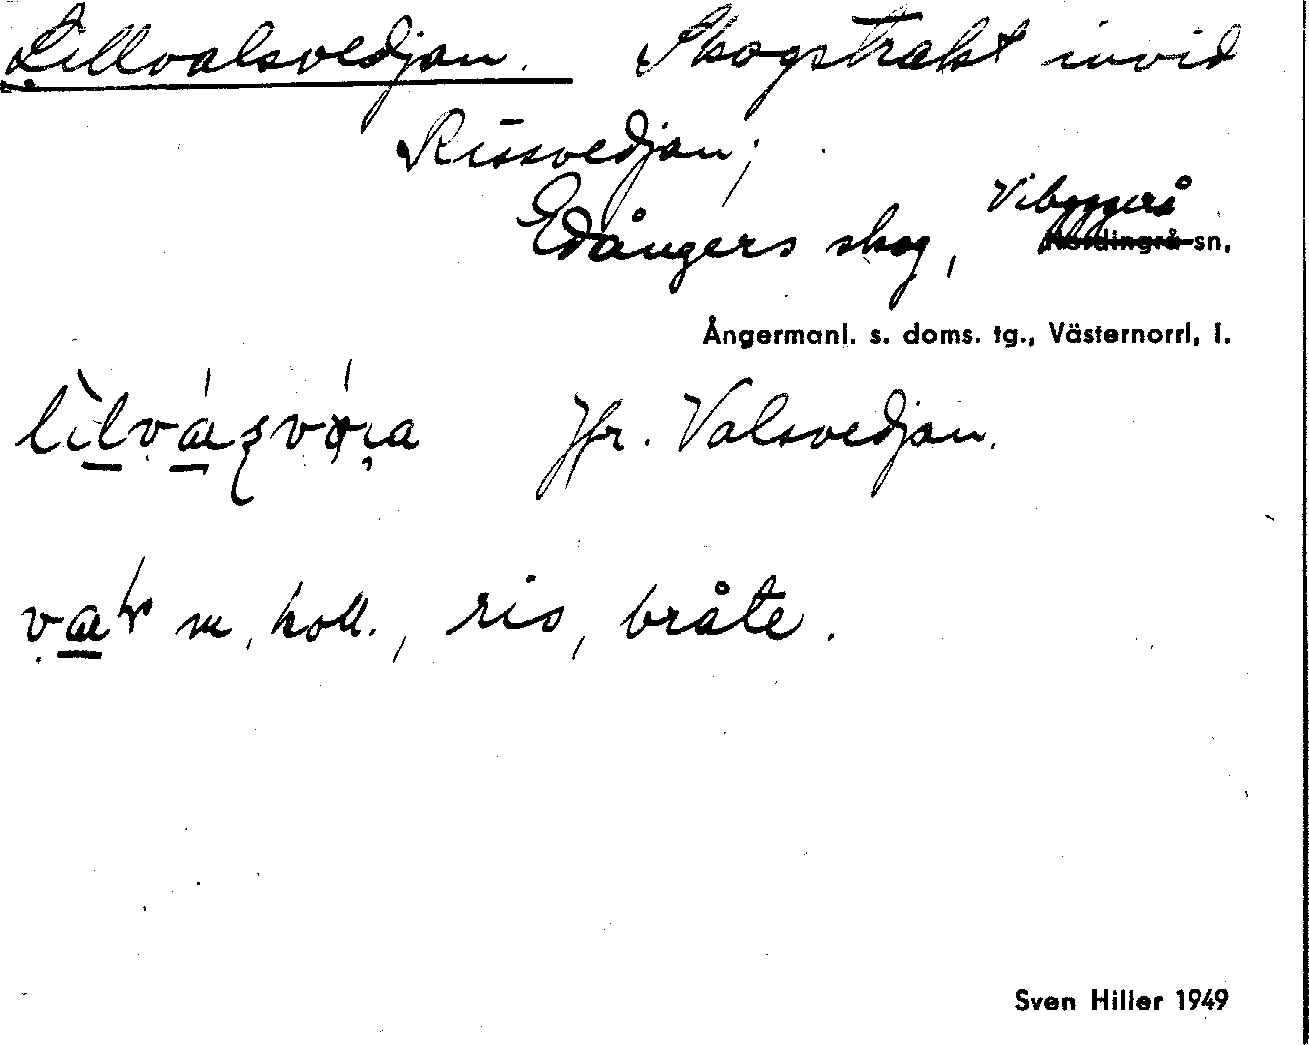 Lillvalsvedjan. Skogstrakt invid
Rissvedjan;
Edångers skog, Vibyggerå
Nordingrå sn,
Ångermanl. s. doms. tg., Västernorrl, l.
Jfr. Valsvedjan.
m, koll., ris, bråte.
Sven Hiller 1949